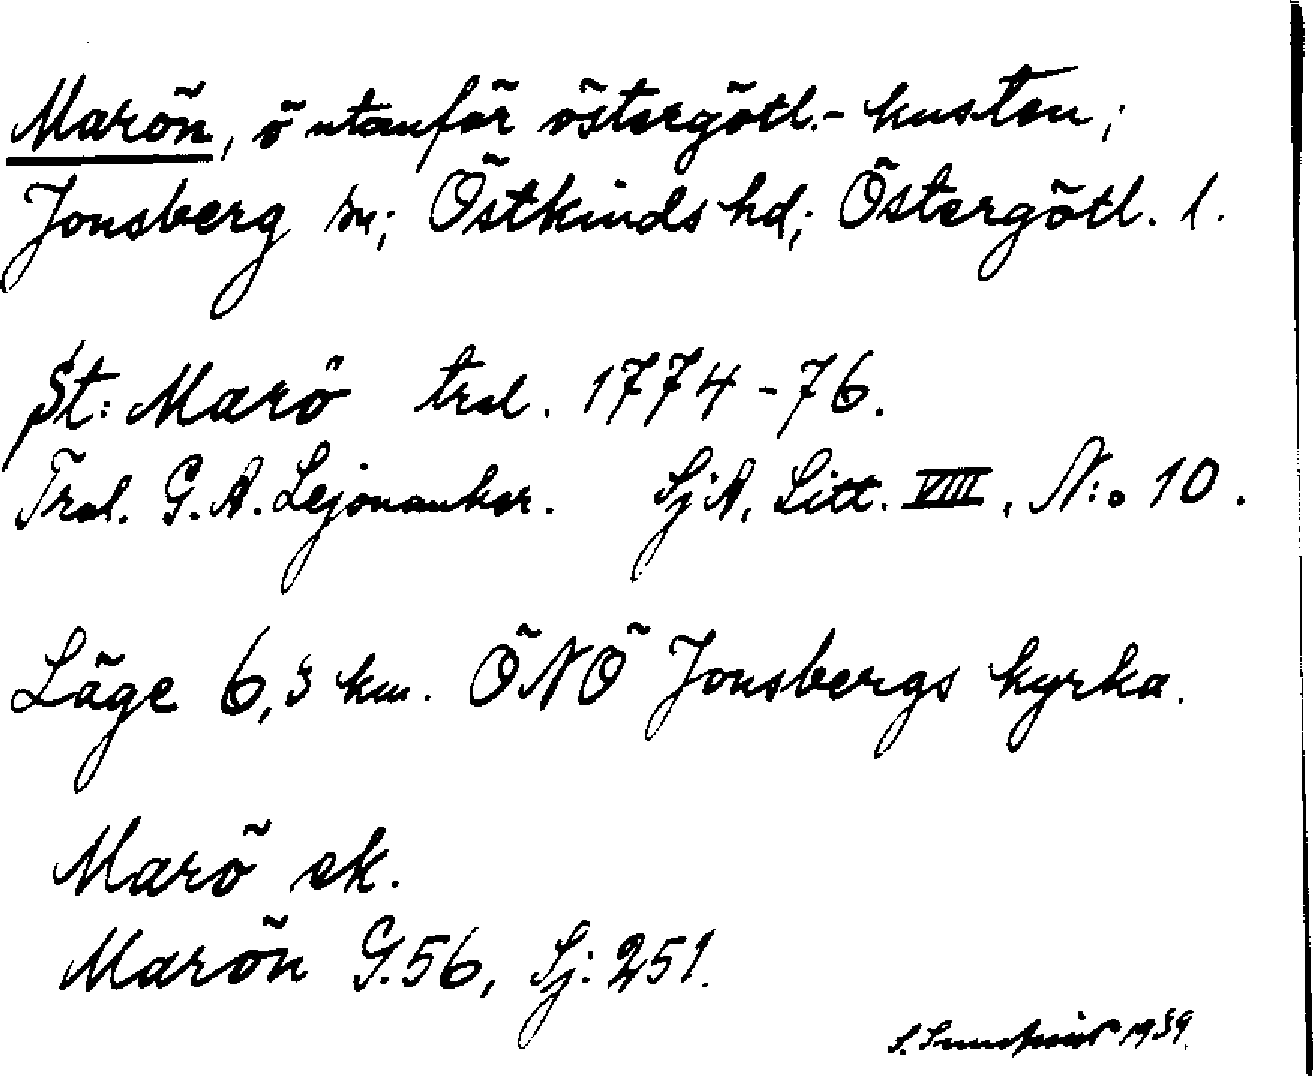 Marön, ö utanför östergötl.- kusten;
Jonsberg sn; Östkinds hd; Östergötl. l.
St: Marö trol. 1774-76.
Trol. G. A. Lejonankar. SjA, Litt. VIII, N:o 10.
Läge 6,3 km. ÖNÖ Jonsbergs kyrka.
Marö ek.
Marön G.56, Sj: 251.
S. 1939.